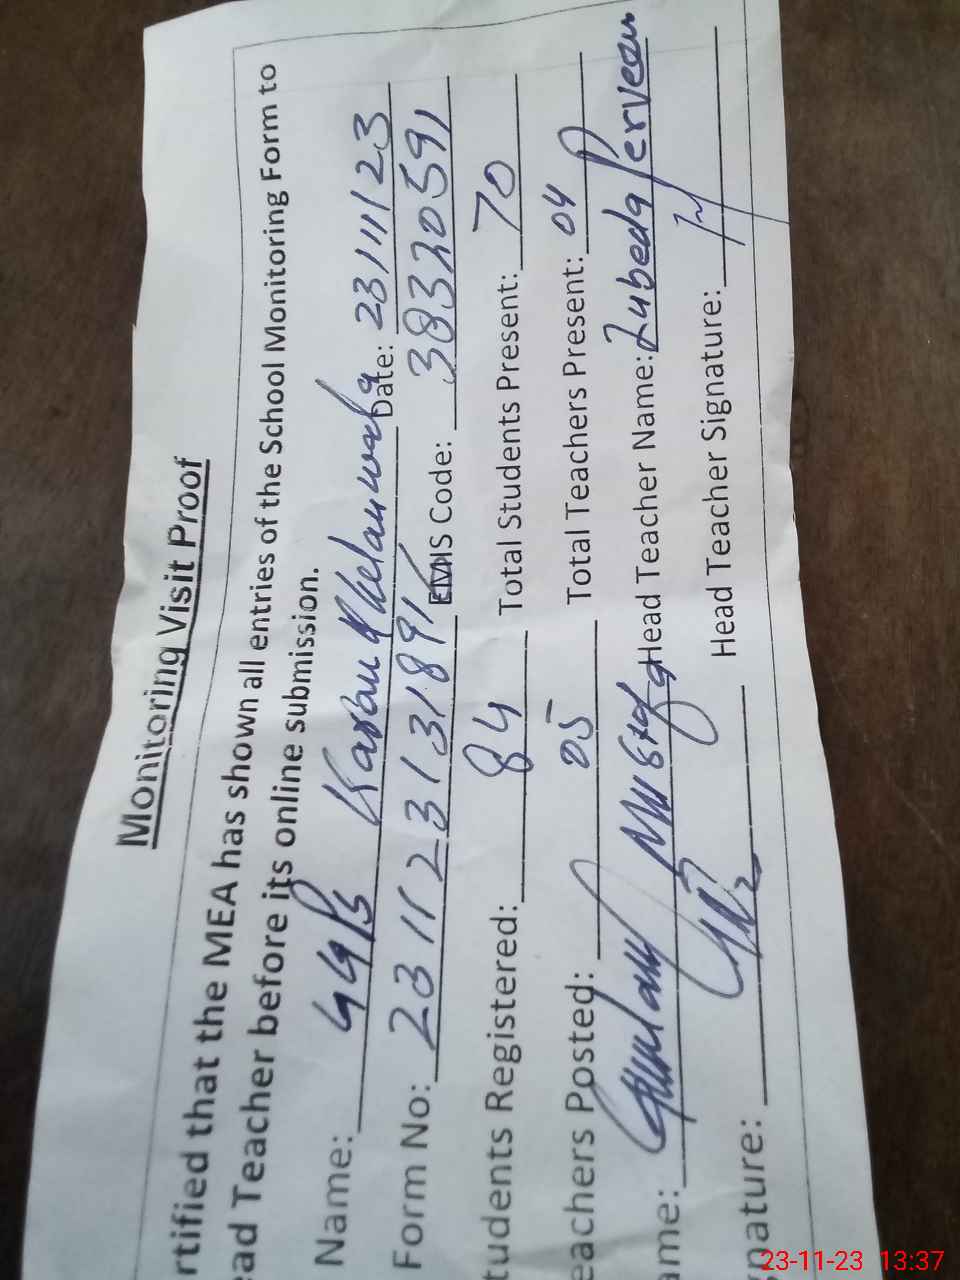 Monitoring Visit Proof
rtified that the MEA has shown all entries of the School Monitoring Form to
ead Teacher before its online submission.
Name: GGPS Date: 23/11/23
Form No: 23112313189 EMIS Code: 38320591
tudents Registered: 84 Total Students Present: 70
eachers Posted: 05 Total Teachers Present: 04
ame: Ghulam Mustafa Head Teacher Name: Zubeda Perveen
gnature: Head Teacher Signature:
23-11-23 13:37